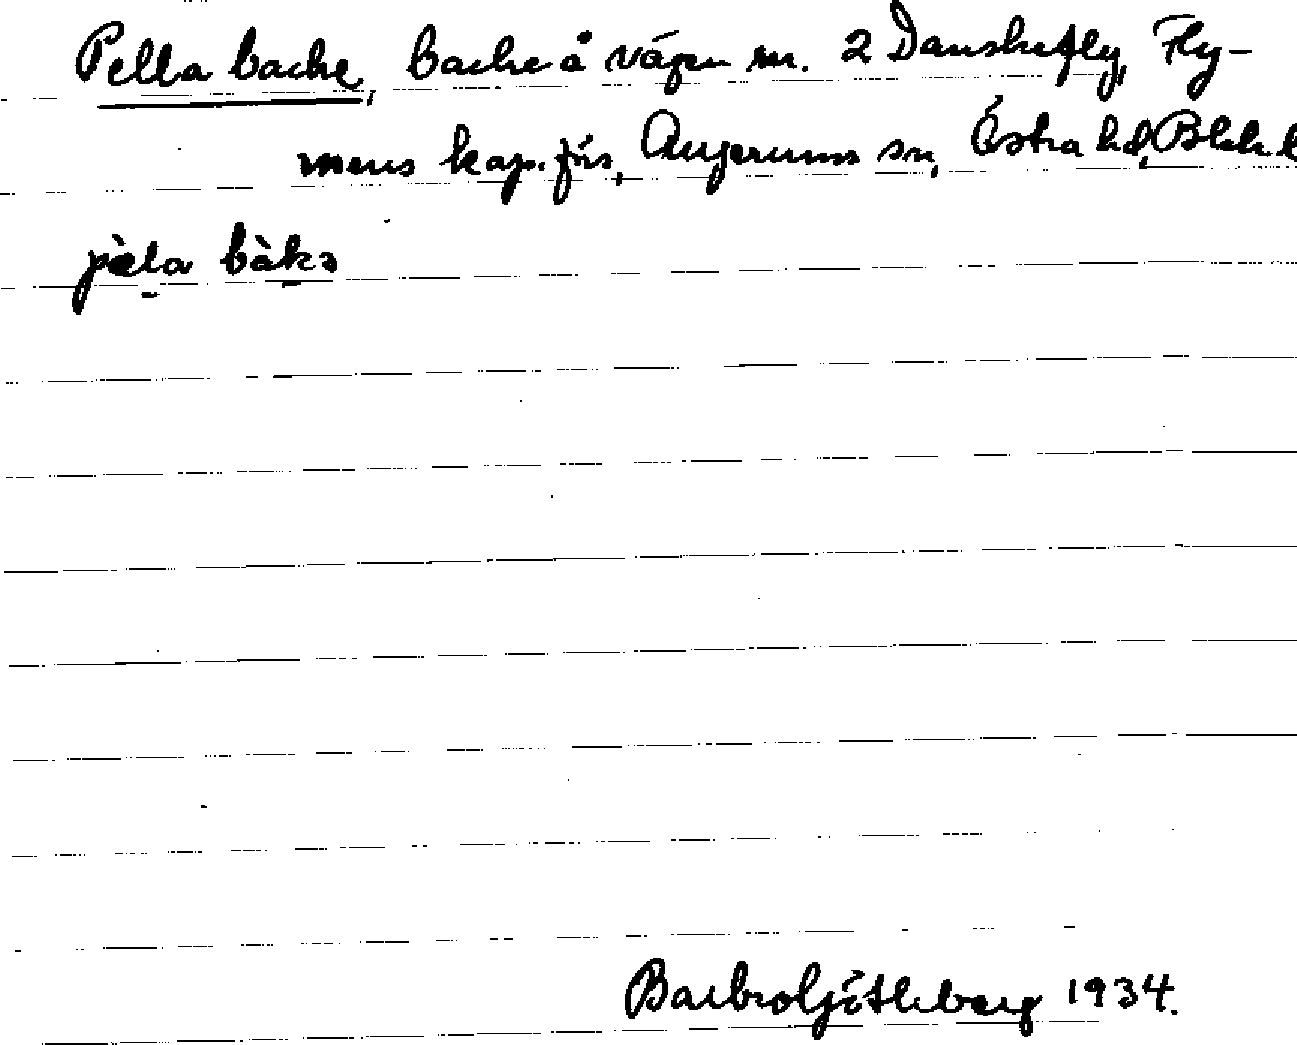 Pella backe, backe å vägen nr. 2 Danskefly, Fly-
mens kap. förs, Augerums sn, Östra hd, Blek. l
pèla bàkə
Barbro Götheberg 1934.